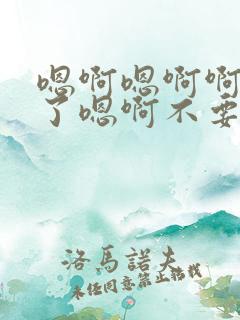 嗯啊嗯啊啊
了嗯啊不要
洛馬諾夫
未經同意禁止轉載